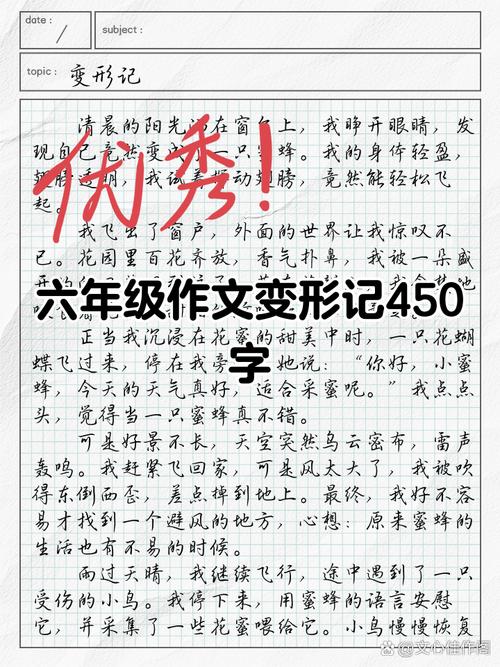 date:
subject:
topic: 变形记
清晨的阳光洒在窗台上，我睁开眼睛，发
现自己竟然变成了一只蜜蜂。我的身体轻盈，
翅膀透明，我试着振动翅膀，竟然能轻松飞
起。
优秀！
我飞出了窗户，外面的世界让我惊叹不
已。花园里百花齐放，香气扑鼻，我被一朵盛
六年级作文变形记450
字
正当我沉浸在花蜜的甜美中时，一只花蝴
蝶飞过来，停在我旁 她说：“你好，小蜜
蜂，今天的天气真好，适合采蜜呢。”我点点
头，觉得当一只蜜蜂真不错。
可是好景不长，天空突然乌云密布，雷声
轰鸣。我赶紧飞回家，可是风太大了，我被吹
得东倒西歪，差点掉到地上。最终，我好不容
易才找到一个避风的地方，心想：原来蜜蜂的
生活也有不易的时候。
雨过天晴，我继续飞行，途中遇到了一只
受伤的小鸟。我停下来，用蜜蜂的语言安慰
它，并采集了一些花蜜喂给它。小鸟慢慢恢复
文心佳作阁